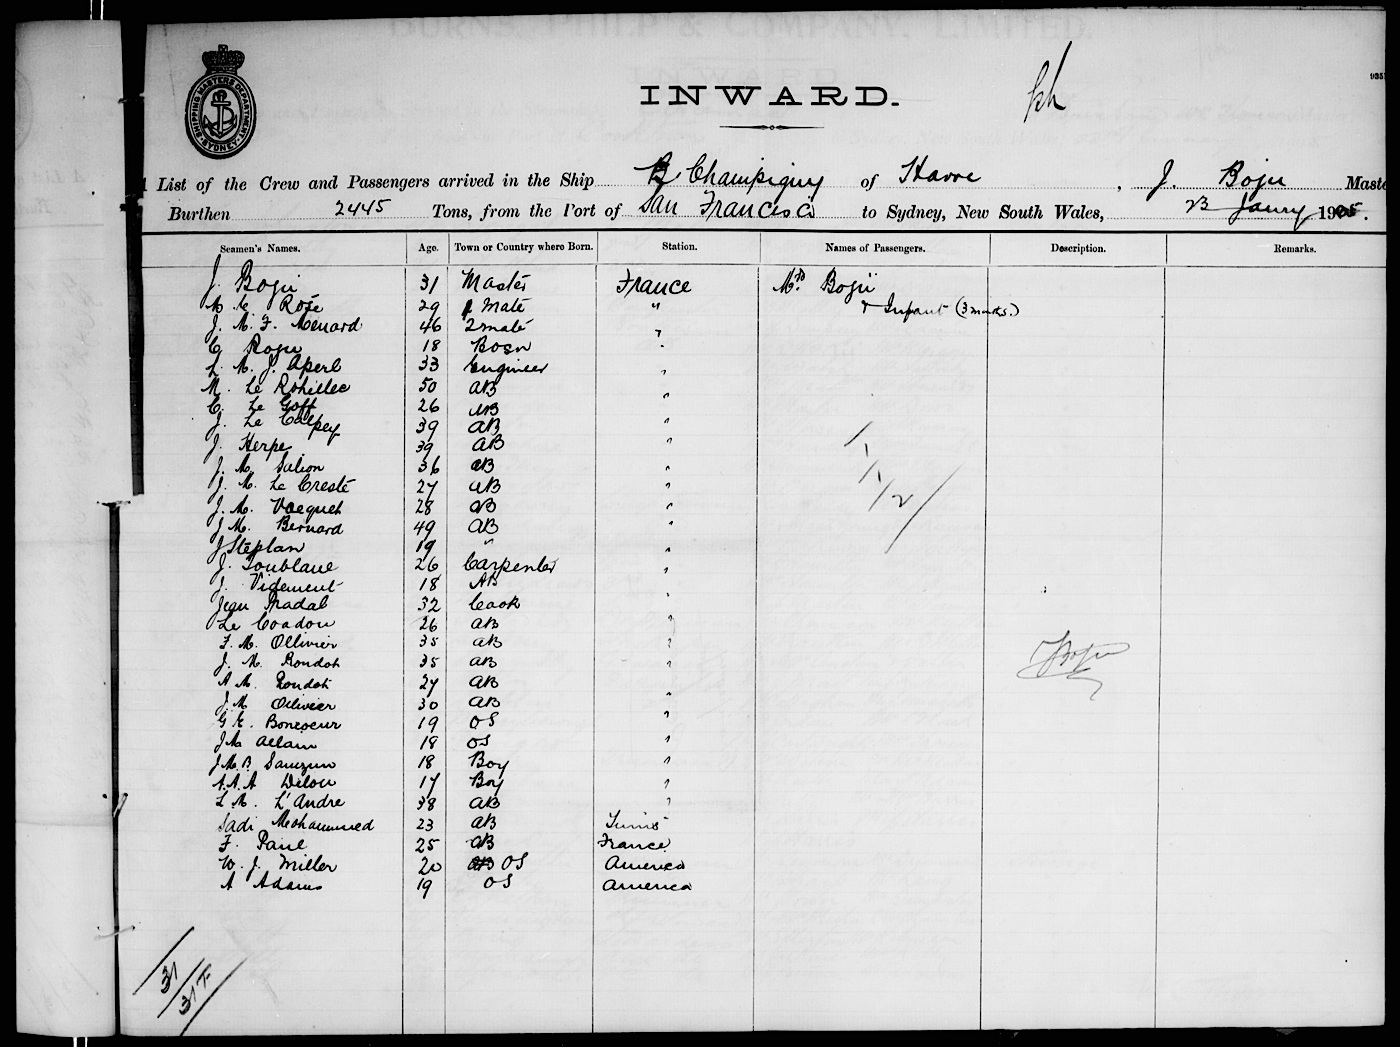 INWARD.
SHIPPING MASTERS DEPARTMENT SYDNEY
A List of the Crew and Passengers arrived in the Ship B Champigny of Havre, J. Boju Maste
Burthen 2445 Tons, from the Port of San Francisco to Sydney, New South Wales, 23 Janry 1905.
Seamen's Names. Age. Town or Country where Born. Station. Names of Passengers. Description. Remarks.
J. Boju 31 Master France Mrs Boju
Rose 29 1 Mate " & Infant (3 months.)
J. M. F. Menard 46 2 mate "
C. Boju 18 Bosn "
L. M. J. Aperl 33 Engineer "
M. Le Rohellec 50 AB "
C. Le Goff 26 AB "
J. Le Calpey 39 AB "
J. Herpe 39 AB "
J. M. Sulion 36 AB "
J. M. Le Creste 27 AB "
J. M. Vocquet 28 AB "
J M. Bernard 49 AB "
J Stephan 19 " "
J. Toublane 26 Carpenter "
J. Videment 18 AB "
Jean Pradal 32 Cook "
Le Coadou 26 AB "
F. M. Ollivier 35 AB "
J. M. Rondot 35 AB "
A M. Rondot 27 AB "
J. M Ollivier 30 AB "
G E. Boncoeur 19 OS "
J M Allain 18 OS "
J M B. Samzun 18 Boy "
A. A. A Delou 17 Boy "
L M. L'Andre 38 AB "
Sadi Mohammed 23 AB Tunis
F. Paul 25 AB France
W. J. Miller 20 OS America
A Adams 19 OS America
1
1
1/2
J Boju
31
31 +